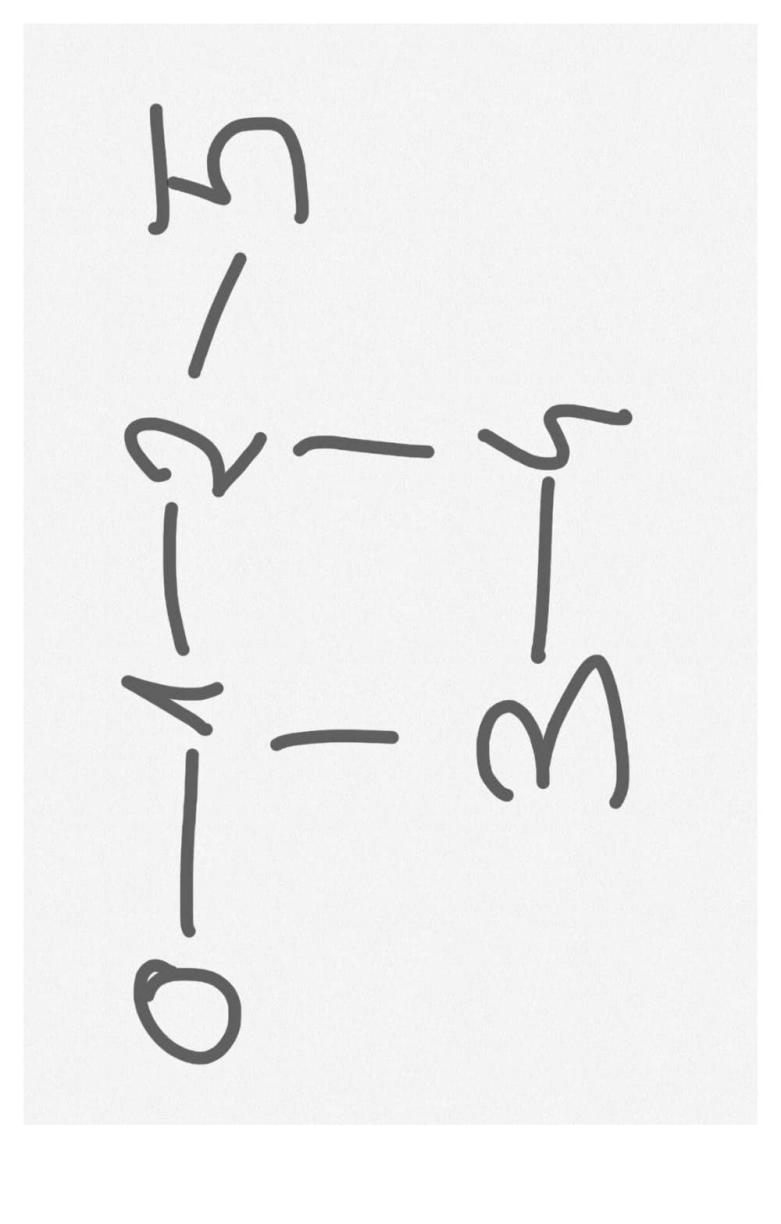 0 - 1 - 2 - 5
| |
3 - 4